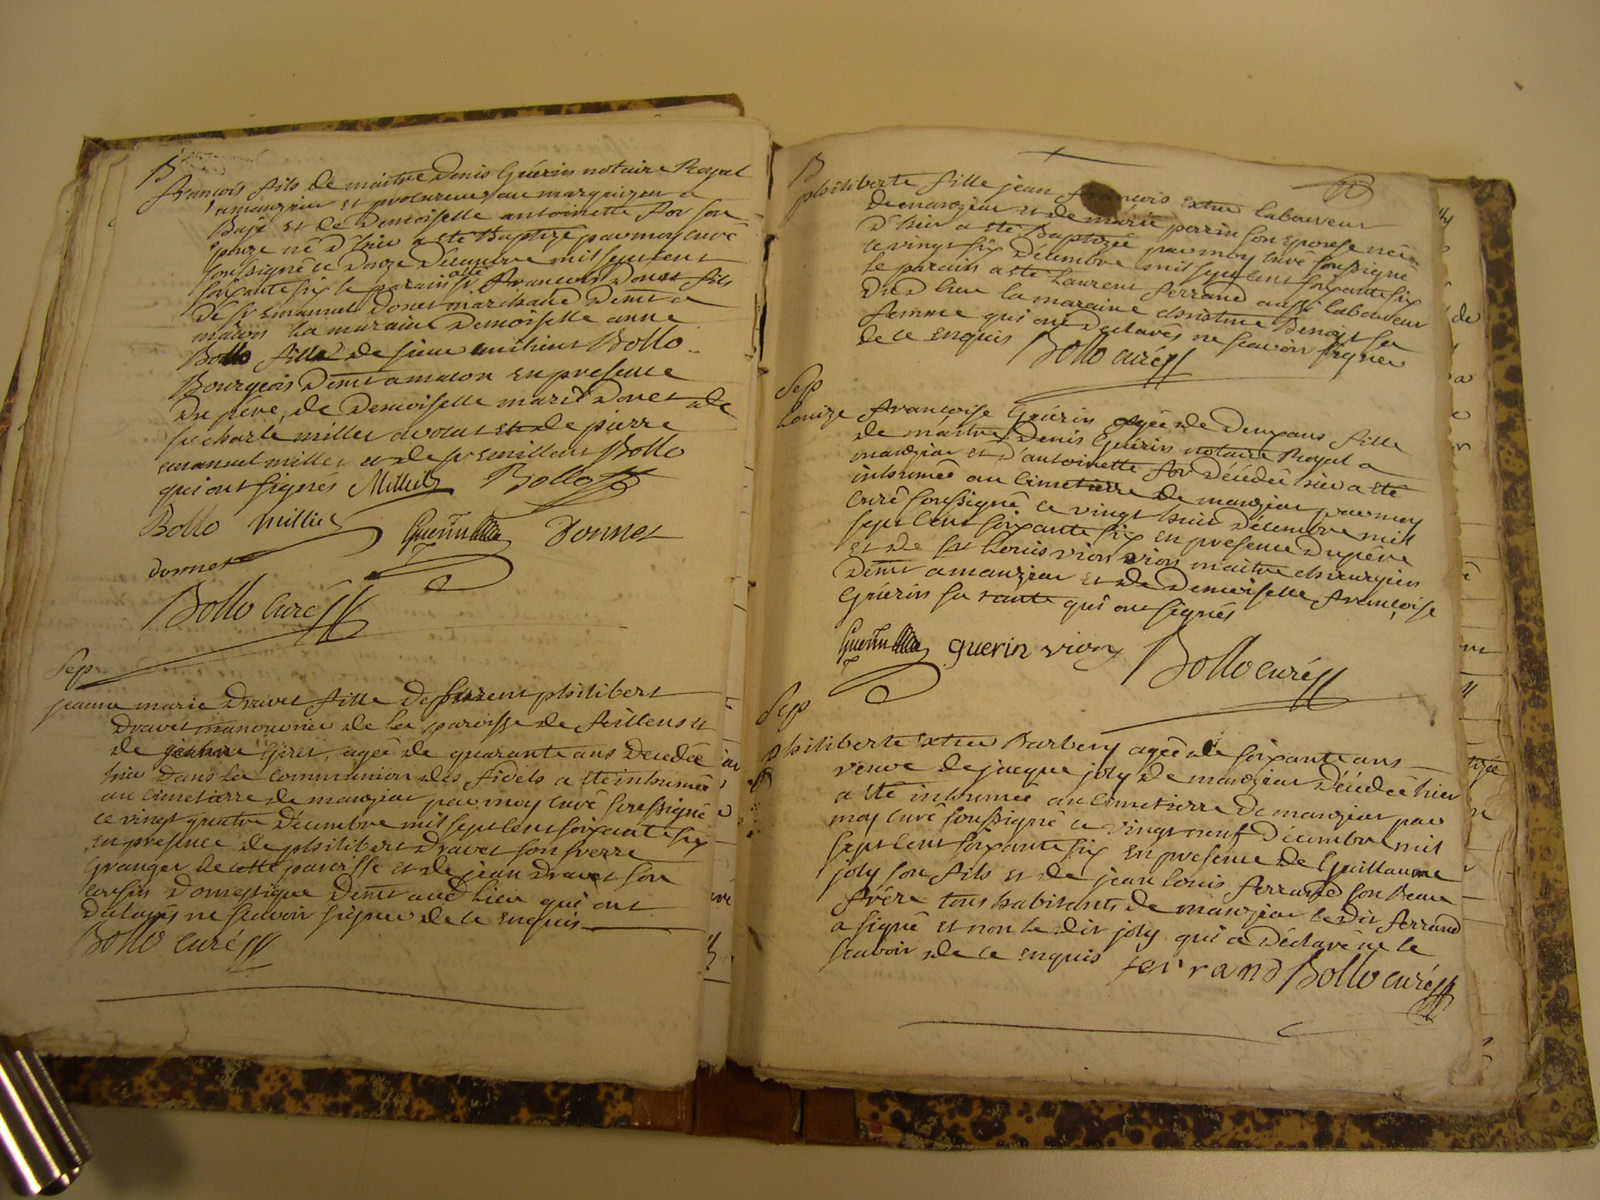 B
françois fils de maitre Denis Guérin notaire Royal
a manziat et procureur au marquizat de
Bagé et de Demoiselle antoinette For son
Epouze né d'hier a eté Baptizé par moy curé
soussigné ce Douze Décembre mil sept cent
soixante six le parain Sr françois Donet fils
de Sr Emanuel Donet marchand Demt a
macon la maraine Demoiselle anne
Bollo fille de sieur Bollo
Bourgeois Demt a macon En presence
Du père, de Demoiselle marie Donet de
sr charle millet avocat et de pierre
emanuel millet et de sr Bollo
qui ont signés Millet Bollo
Bollo Millet Guerin Donnet
donnet
Bollo curé
Sep
jeanne marie Dravet fille De philibert
Dravet manouvrier de la paroisse de feillens et
de agée de quarante ans Decedée
hier dans la communion des fidels a eté inhumée
au cimetierre de manziat par moy curé soussigné
ce vingt quatre Décembre mil sept cent soixante six
en presence de philibert Dravet son frerre
Granger de cette paroisse et de jean Dravet son
cousin Domestique Demt aud lieu qui ont
Déclarés ne scavoir signer de ce Enquis
Bollo curé
B
philiberte fille jean françois Extra laboureur
de manziat et de marie perrin son Epouse née
d'hier a eté Baptizée par moy curé soussigné
ce vingt six Décembre mil sept cent soixante six
le parain a eté laurent ferrand aussi laboureur
Dud lieu la maraine Benoit sa
femme qui ont Déclarés ne scavoir signer
de ce Enquis Bollo curé
Sep
Louize françoise Guérin agée de Deux ans fille
de maitre Denis Guérin notaire Royal a
manziat et d'antoinette for Décédée hier a eté
inhumée au cimetierre de manziat par moy
curé soussigné ce vingt huit Décembre mil
sept cent soixante six en presence du père
et de Sr Louis vion maitre chirurgien
Demt a manziat et de Demoiselle françoise
Guérin sa tante qui ont signés
Guerin guerin vion Bollo curé
Sep
philiberte Extra Barbery agée de soixante ans
veuve de jacque joly de manziat Décédée hier
a eté inhumée au cimetierre de manziat par
moy curé soussigné ce vingt neuf Décembre mil
sept cent soixante six En presence de Guillaume
joly son fils et de jean louis ferrand son Beau
frère tous habitants de manziat le dit ferrand
a signé et non le dit joly qui a Déclaré ne le
scavoir de ce enquis ferrand Bollo curé